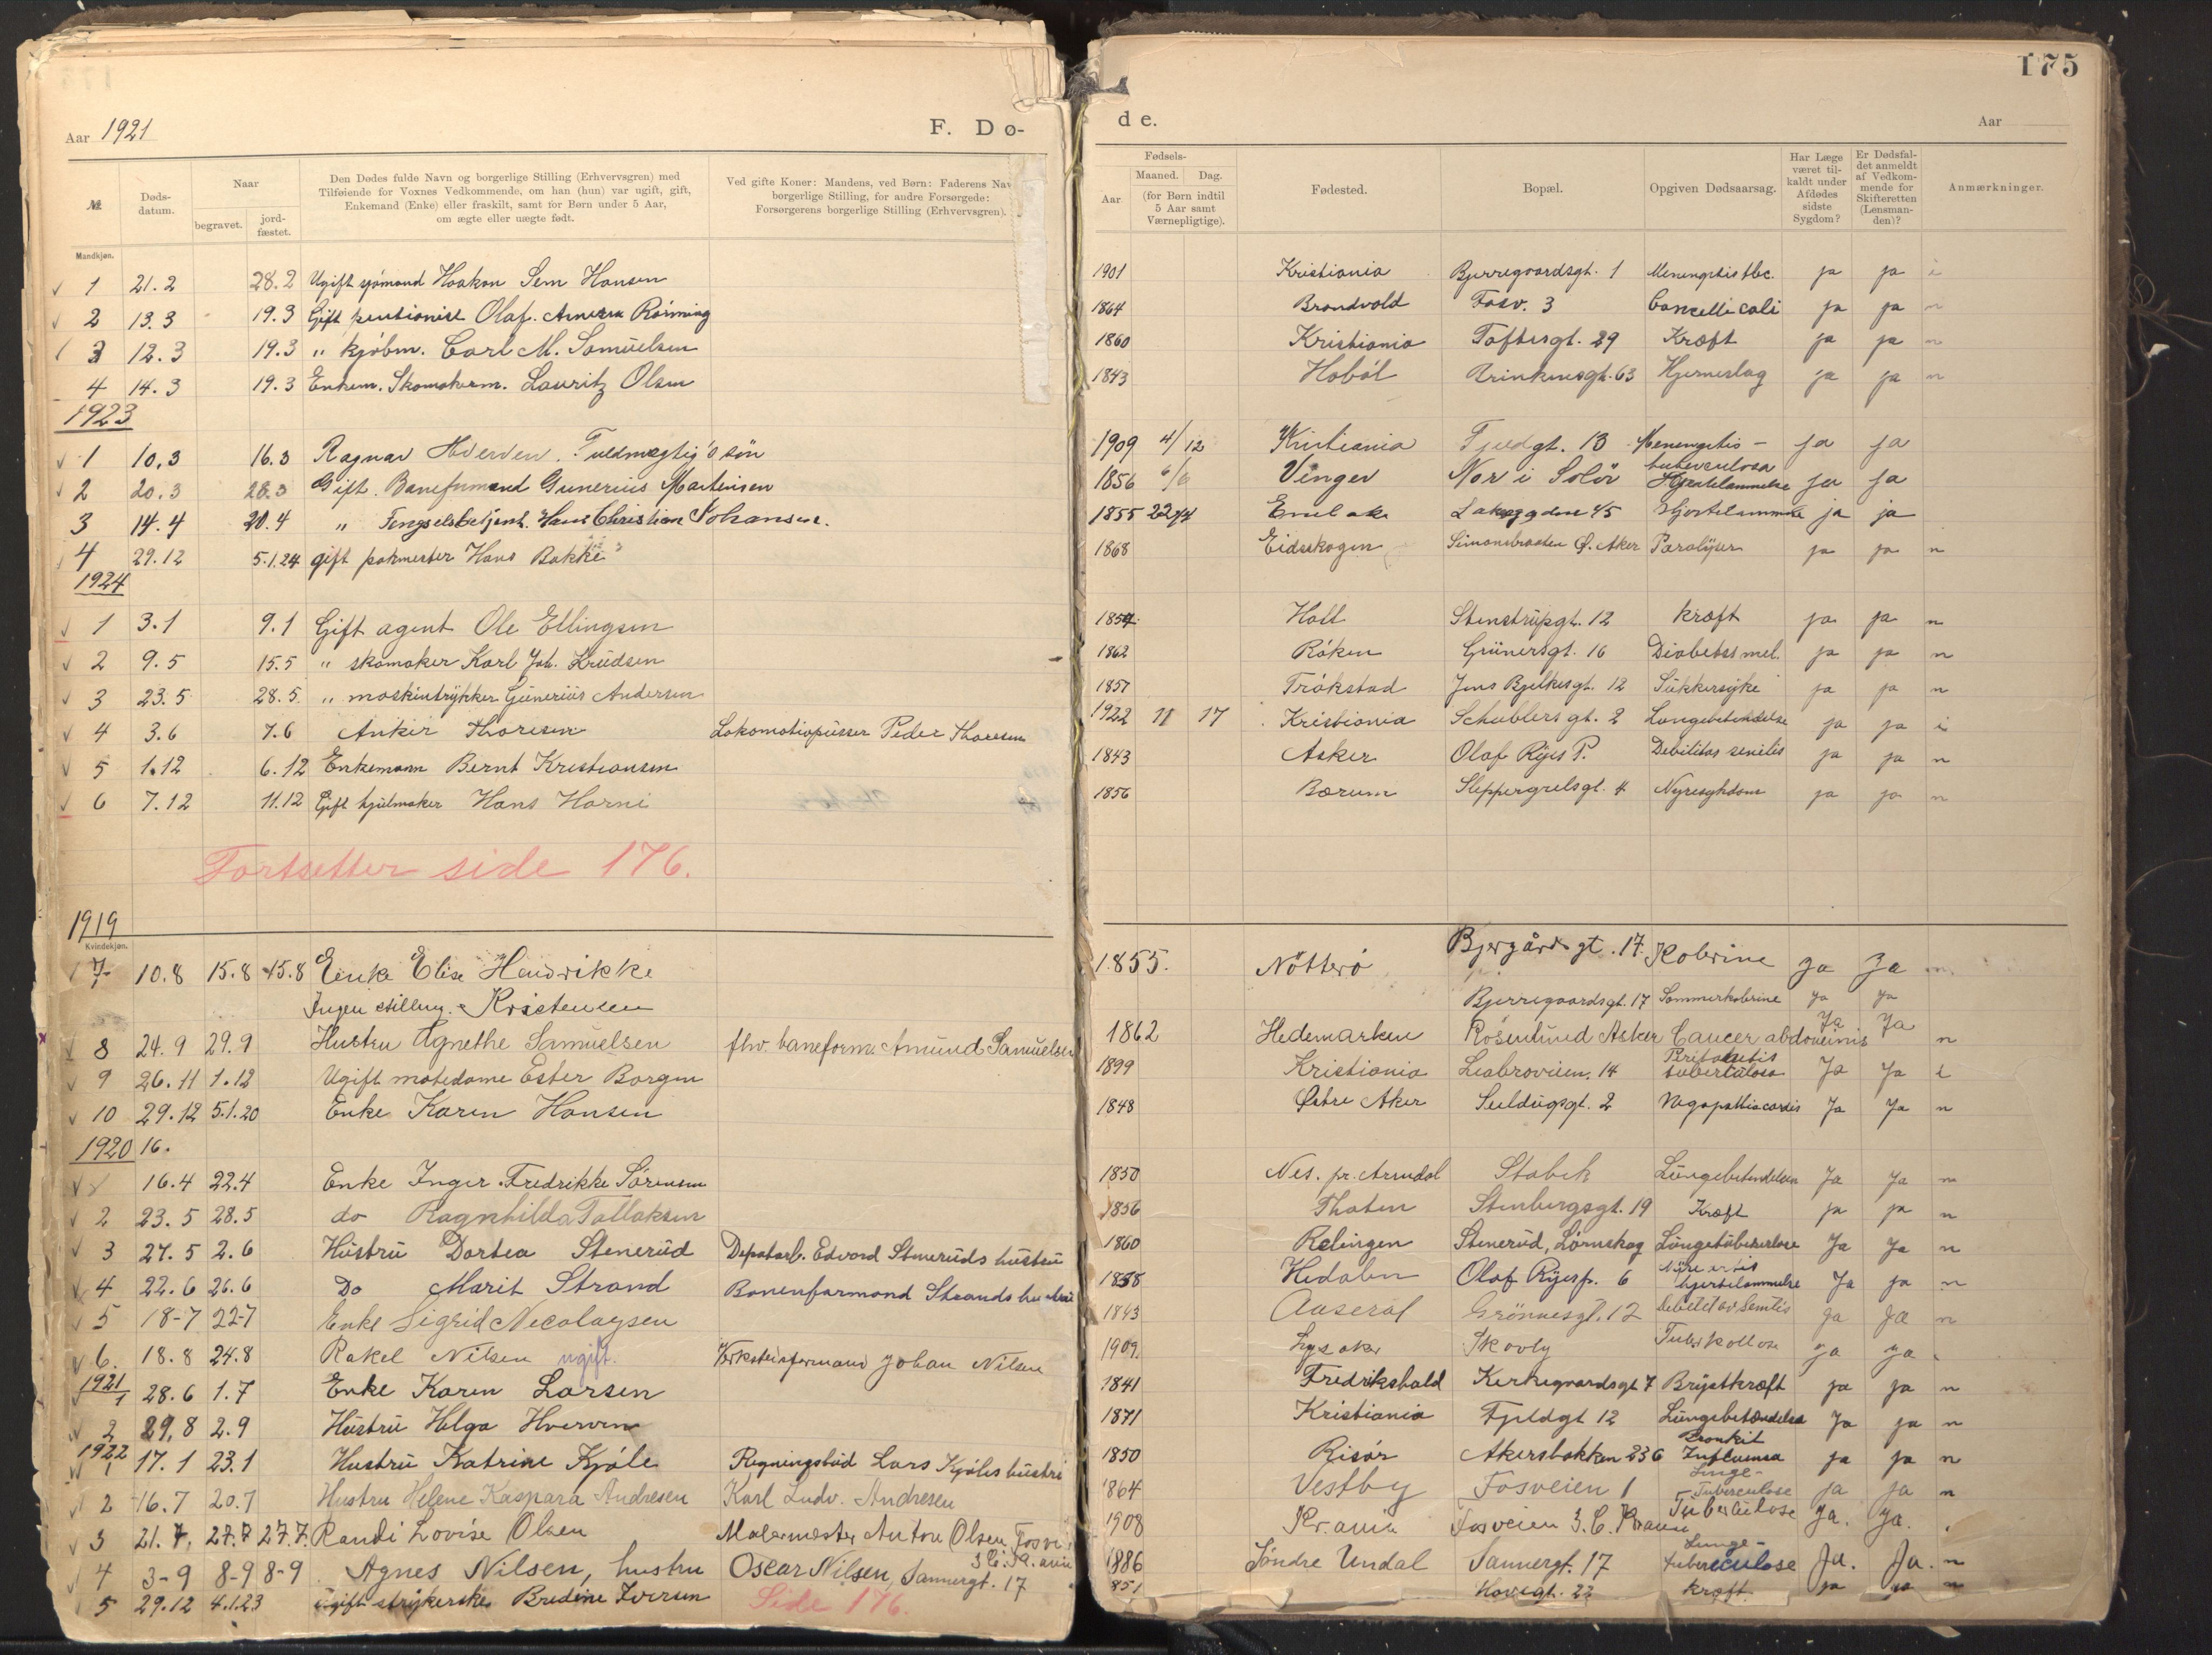 175
Aar 1921
F. Dø-
de.
Aar
№
Døds-
datum.
Naar
begravet.
jord-
fæstet.
Den Dødes fulde Navn og borgerlige Stilling (Erhvervsgren) med
Tilføiende for Voxnes Vedkommende, om han (hun) var ugift, gift,
Enkemand (Enke) eller fraskilt, samt for Børn under 5 Aar,
om ægte eller uægte født.
Ved gifte Koner: Mandens, ved Børn: Faderens Nav
borgerlige Stilling, for andre Forsørgede:
Forsørgerens borgerlige Stilling (Erhvervsgren).
Fødsels-
Aar
Maaned. Dag.
(for Børn indtil
5 Aar samt
Værnepligtige).
Fødested.
Bopæl.
Opgiven Dødsaarsag.
Har Læge
været til-
kaldt under
Afdødes
sidste
Sygdom?
Er Dødsfal-
det anmeldt
af Vedkom-
mende for
Skifteretten
(Lensman-
den)?
Anmærkninger.
Mandkjøn.
1 21.2 28.2 Ugift sjömand Haakon Sem Hansen 1901 Kristiania Bjerregaardsgt. 1 ja ja i
2 13.3 19.3 Gift Olaf 1864 Brandvold Fosv. 3 ja ja n
3 12.3 19.3 " kjöbm. Carl M. Samuelsen 1860 Kristiania Toftesgt. 29 Kræft ja ja n
4 14.3 19.3 Enkem. Skomakerm. Lauritz Olsen 1843 Haböl 63 Hjerneslag ja ja n
1923
1 10.3 16.3 Ragnar Hverven. Fuldmægtig's sön 1909 4/12 Kristiania 13 Menengitis - ja ja
tuberculosa
2 20.3 28.3 Gift. Baneformand Gunerius Martinsen 1856 6/6 Vinger Nor i Solör Hjertelammelse ja ja
3 14.4 20.4 " Fengselsbetjent. Hans Christian Johansen. 1855 45 Hjertelammelse ja ja
4 29.12 5.1.24 gift pakmester Hans Bakke 1868 Eidsskogen Simensbraaten Ø. Aker Paralyser ja ja n
1924
1 3.1 9.1 Gift agent Ole Ellingsen 1854 Holt Stenstrupgt. 12 kræft ja ja n
2 9.5 15.5 " skomaker Karl Joh. Knudsen 1862 Röken Grünersgt. 16 Diabetes mel. ja ja n
3 23.5 28.5 " maskintrykker Gunerius Andersen 1857 Trökstad Jens Bjelkesgt. 12 Sukkersyke ja ja n
4 3.6 7.6 Thoresen Lokomotivpusser Peder Thoresen 1922 11 17 Kristiania Schüblers gt. 2 Lungebetendelse ja ja i
5 1.12 6.12 Enkemann Bernt Kristiansen 1843 Asker Olaf Ryes P. Debilitas senilis ja ja n
6 7.12 11.12 Gift hjulmaker Hans Horni 1856 Bærum Sleppegrelsgt. 4 Nyresykdom ja ja n
Fortsetter side 176.
1919
Kvindekjøn.
7 10.8 15.8 15.8 Enke Elise Hendrikke 1855. Nötterö Bjergårdsgt. 17. Kolerine ja Ja
Ingen stilling. Kristensen Bjerregaardsgt. 17 Sommerkolerine ja ja
8 24.9 29.9 Hustru Agnethe Samuelsen fhv. baneform. Amund Samuelsen 1862 Hedemarken Rosenlund Asker Cancer abdominis Ja Ja n
9 26.11 1.12 Ugift motedame Ester Borgen 1899 Kristiania Ljabroveien. 14 Peritonitis tuberculosa Ja Ja i
10 29.12 5.1.20 Enke Karen Hansen 1848 Østre Aker Seildugsgt. 2 Ja Ja n
1920 16.
16.4 22.4 Enke Inger Fredrikke Sörensen 1850 Nes. pr. Arendal Stabek Lungebetendelsen Ja Ja n
2 23.5 28.5 do Ragnhilda Tallaksen 1856 Thoten Stenbergsgt. 19 Kræft ja ja n
3 27.5 2.6 Hustru Dortea Stenerud Depotarb. Edvard Steneruds hustru 1860 Rælingen Stenerud, Lörnskog Lungetuberkulose Ja Ja n
4 22.6 26.6 Do Marit Strand Baneformand Strands hustru 1858 Hedalen Olaf Ryesp. 6 hjertelammelse Ja ja n
5 18-7 22-7 Enke Sigrid Nicolaysen 1843 Aaseral 12 ja Ja n
6. 18.8 24.8 Rakel Nilsen ugift. Verkstedsformand Johan Nilsen 1909. Lysaker Skovly ja ja
1921
1 28.6 1.7 Enke Karen Larsen 1841 Fredrikshald Kirkegaardsgt 7 Brystkræft ja ja n
2 29.8 2.9 Hustru Helga Hverven 1871 Kristiania Fjeldgt 12 Lungebetændelse Ja ja n
1922
1 17.1 23.1 Hustru Katrine Kjöle Regningsbud Lars Kjöles hustru 1850 Risör Akersbakken 23 6 Bronkit Influensa ja ja n
2 16.7 20.7 Hustru Helene Kaspara Andresen Karl Ludv. Andresen 1864 Vestby Fosveien 1 Lunge-Tuberculose ja ja n
3 21.7. 27.7 27.7. Randi Lovise Olsen Malermester Anton Olsen, Fosv. 1908 Kr.ania Fosveien 3. C. Kr.ania Tuberculose Ja. Ja.
3 C. Kr.ania
4 3-9 8-9 8-9 Agnes Nilsen, hustru Oscar Nilsen, Sannergt. 17 1886 Söndre Undal Sannergt. 17 Lunge-tuberculose Ja. Ja. n
5 29.12 4.1.23 Ugift strykerske Bredine Iversen Side 176. 851 22 kræft. ja ja n